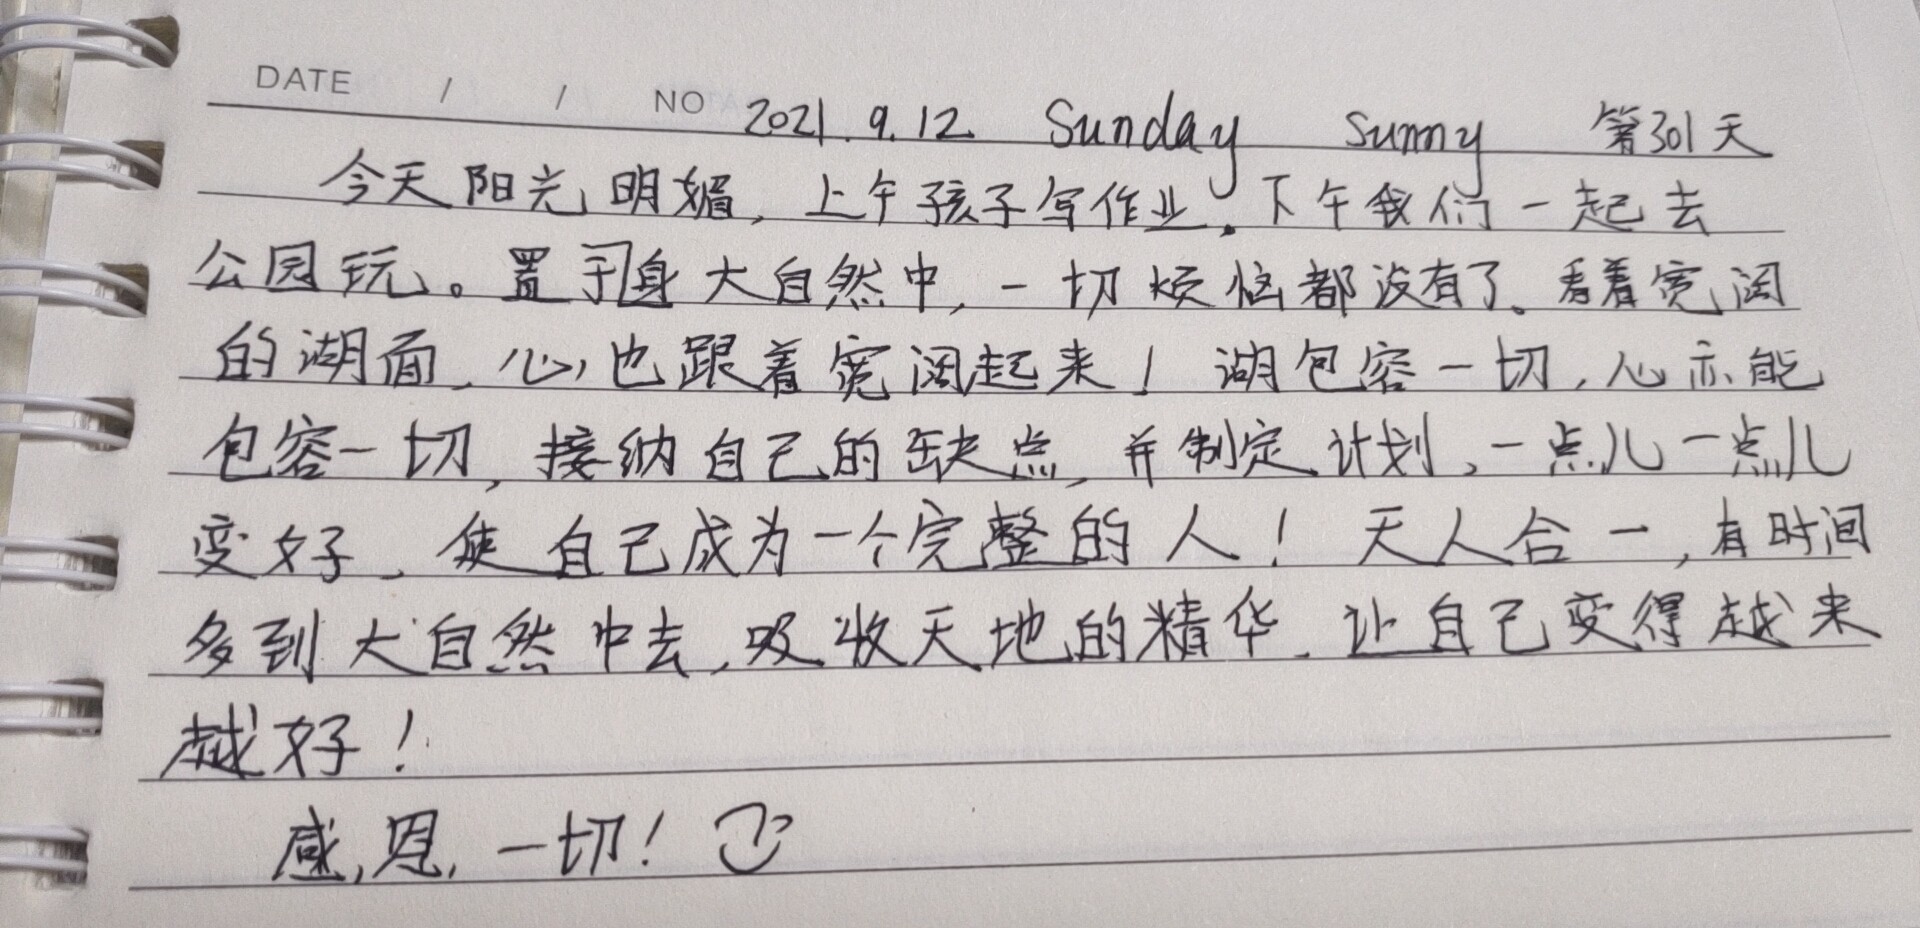 DATE / / NO 2021.9.12 Sunday Sunny 第301天
今天阳光明媚，上午孩子写作业。下午我们一起去
公园玩。置于身大自然中，一切烦恼都没有了。看着宽阔
的湖面，心也跟着宽阔起来！湖包容一切，心亦能
包容一切，接纳自己的缺点，并制定计划，一点儿一点儿
变好，使自己成为一个完整的人！天人合一，有时间
多到大自然中去，吸收天地的精华，让自己变得越来
越好！
感恩一切！